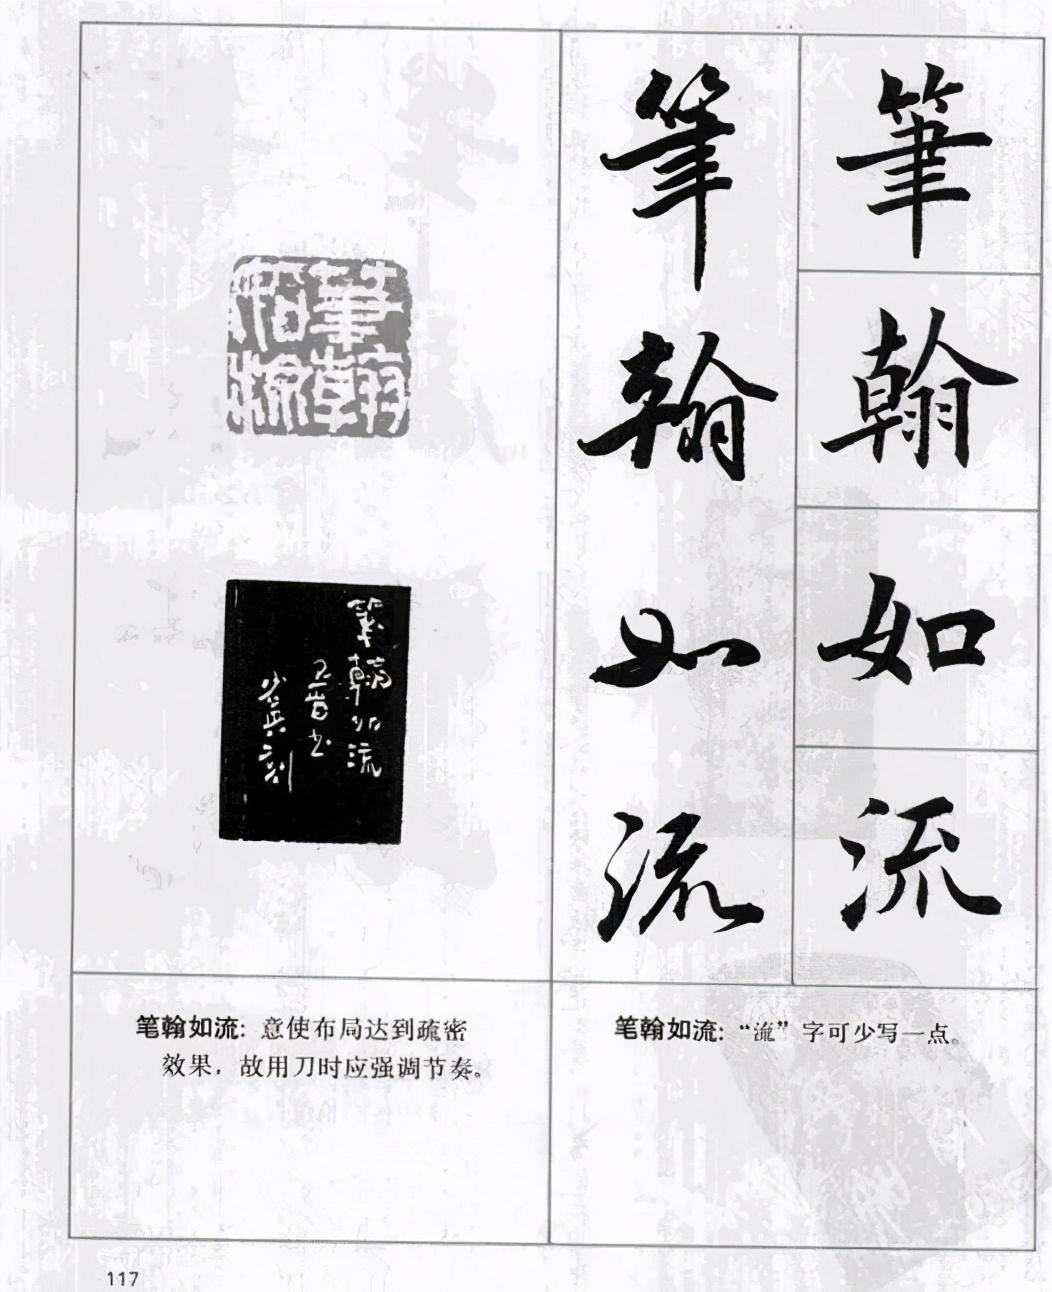 筆翰如流
筆翰如流
筆翰如流
筆翰如流
书
刻
笔翰如流：意使布局达到疏密
效果，故用刀时应强调节奏。
笔翰如流：“流”字可少写一点。
117